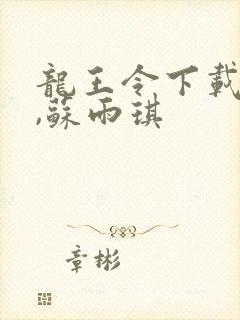 龍王令下載
,蘇雨琪
章彬